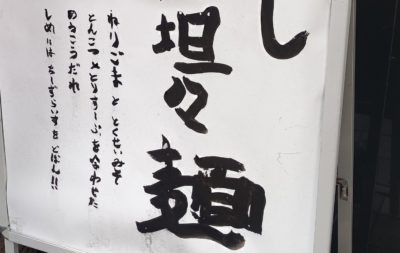 し
坦々麺
ねりごまととくせいみそ
とんこつととりすーぷをあわせた
のうこうだれ
しめにはちーずらいすをどぼん!!